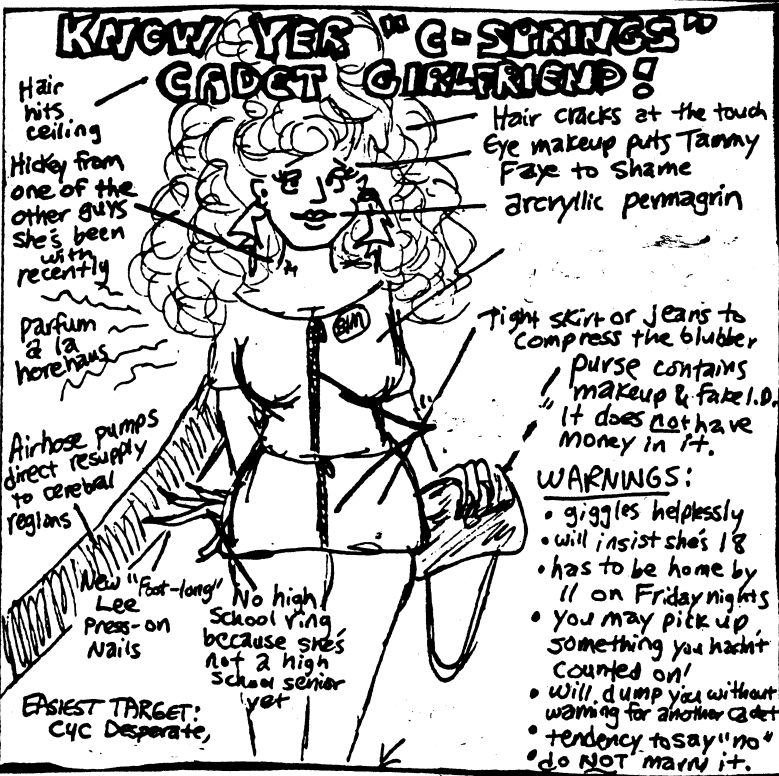 KNOW YER "C-SPRINGS"
CADET GIRLFRIEND!
Hair
hits
ceiling
Hickey from
one of the
other guys
she's been
with
recently
parfum
à la
horehaus
Airhose pumps
direct resupply
to cerebral
regions
New "Foot-long"
Lee
Press-on
Nails
No high
School ring
because she's
not a high
school senior
yet
EASIEST TARGET:
CYC Desperate,
Hair cracks at the touch
Eye makeup puts Tammy
Faye to Shame
arcryllic permagrin
Tight skirt or jeans to
compress the blubber
purse contains
makeup & fake I.D.
It does not have
money in it.
WARNINGS:
• giggles helplessly
• will insist she's 18
• has to be home by
11 on Friday nights
• you may pick up
something you hasn't
counted on!
• will dump you without
warning for another cadet
• tendency to say "no"
• do NOT marry it.